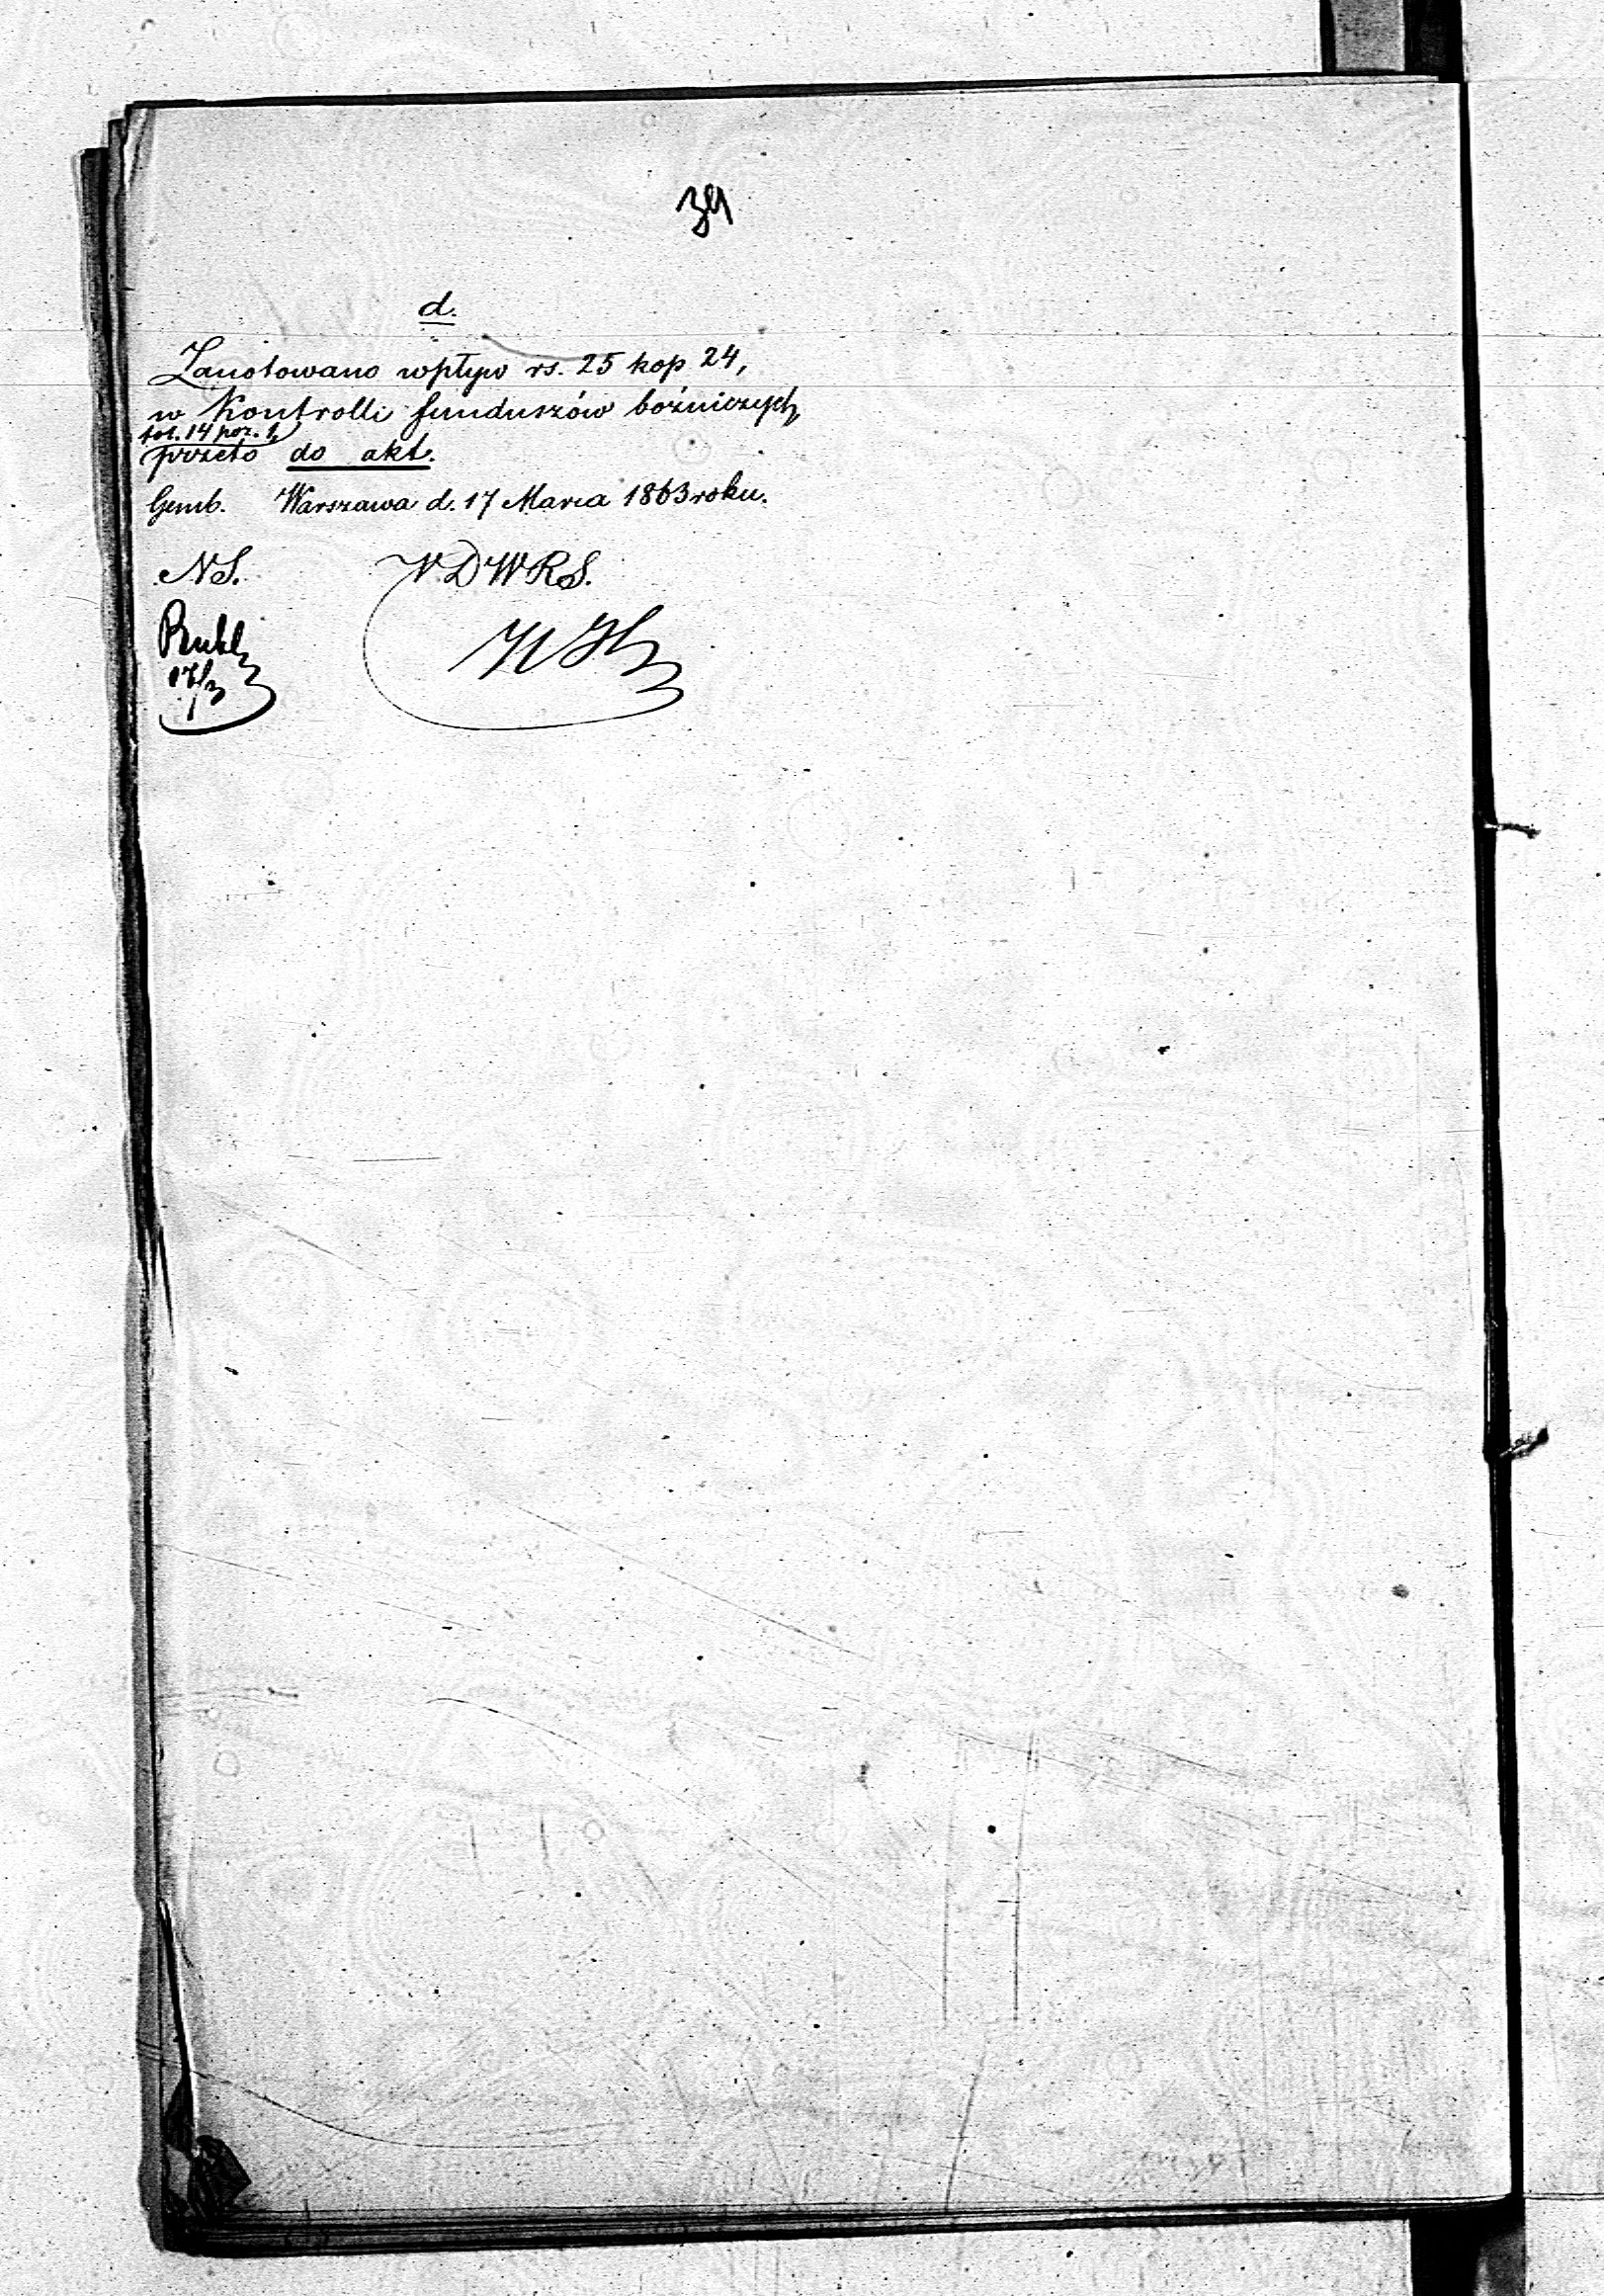 39
d.
Zanotowano wpływ rs. 25 kop 24,
w Kontrolli funduszów bożniczych
fol. 14 poz. 1,
przeto do akt.
Gemb. Warszawa d. 17 Marca 1863 roku.
NS. N.DWRS.
17/3